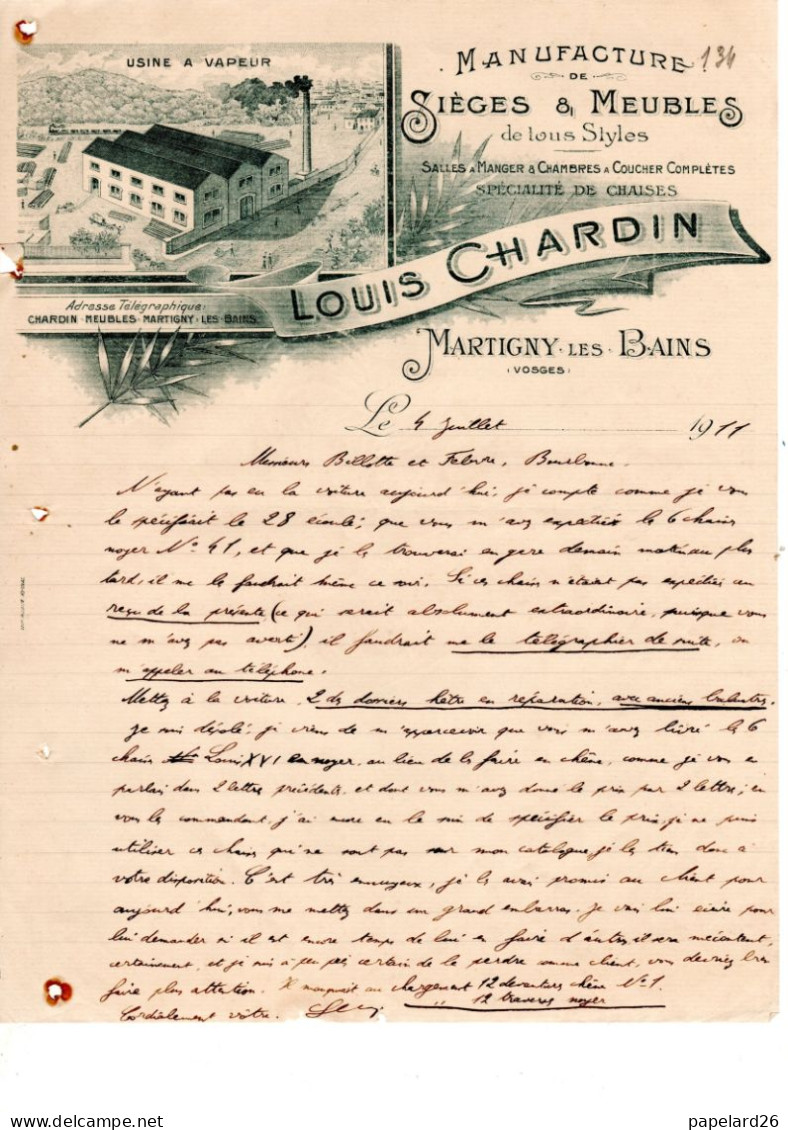 USINE A VAPEUR
MANUFACTURE 134
DE
SIÈGES & MEUBLES
de tous Styles
SALLES A MANGER & CHAMBRES A COUCHER COMPLÈTES
SPÉCIALITÉ DE CHAISES
LOUIS CHARDIN
Adresse Télégraphique:
CHARDIN-MEUBLES-MARTIGNY-LES-BAINS
MARTIGNY-LES-BAINS
(VOSGES)
Le 4 Juillet 1911
Messieurs Billotte et Febvre, Bourbonne.
N'ayant pas eu la voiture aujourd'hui, je compte comme je vous
le spécifiait le 28 écoulé, que vous m'avez expédié les 6 chaises
noyer No 41, et que je les trouverai en gare demain matin au plus
tard, il me les faudrait même ce soir. Si ces chaises n'étaient pas expédiées au
reçu de la présente (ce qui serait absolument extraordinaire, puisque vous
ne m'avez pas averti), il faudrait me le télégraphier de suite, ou
m'appeler au téléphone.
Mettez à la voiture, 2 des dossiers hêtre en réparation, avec anciens
Je suis désolé, je viens de m'apercevoir que vous m'avez livré les 6
chaises Louis XVI en noyer, au lieu de les faire en chêne, comme je vous en
parlais dans 2 lettres précédentes, et dont vous m'avez donné le prix par 2 lettres; en
vous les commandant, j'ai encore eu le soin de spécifier le prix, je ne puis
utiliser ces chaises qui ne sont pas sur mon catalogue, je les tiens donc à
votre disposition. C'est très ennuyeux, je les avais promis au client pour
aujourd'hui, vous me mettez dans un grand embarras. Je vais lui écrire pour
lui demander si il est encore temps de lui en faire d'autres, il sera mécontent,
certainement, et je suis à peu près certain de le perdre comme client, vous devriez bien
faire plus attention. Il manquait au chargement 12 devantures chêne No 1.
" 12 traverses noyer
Cordialement vôtre.
papelard26